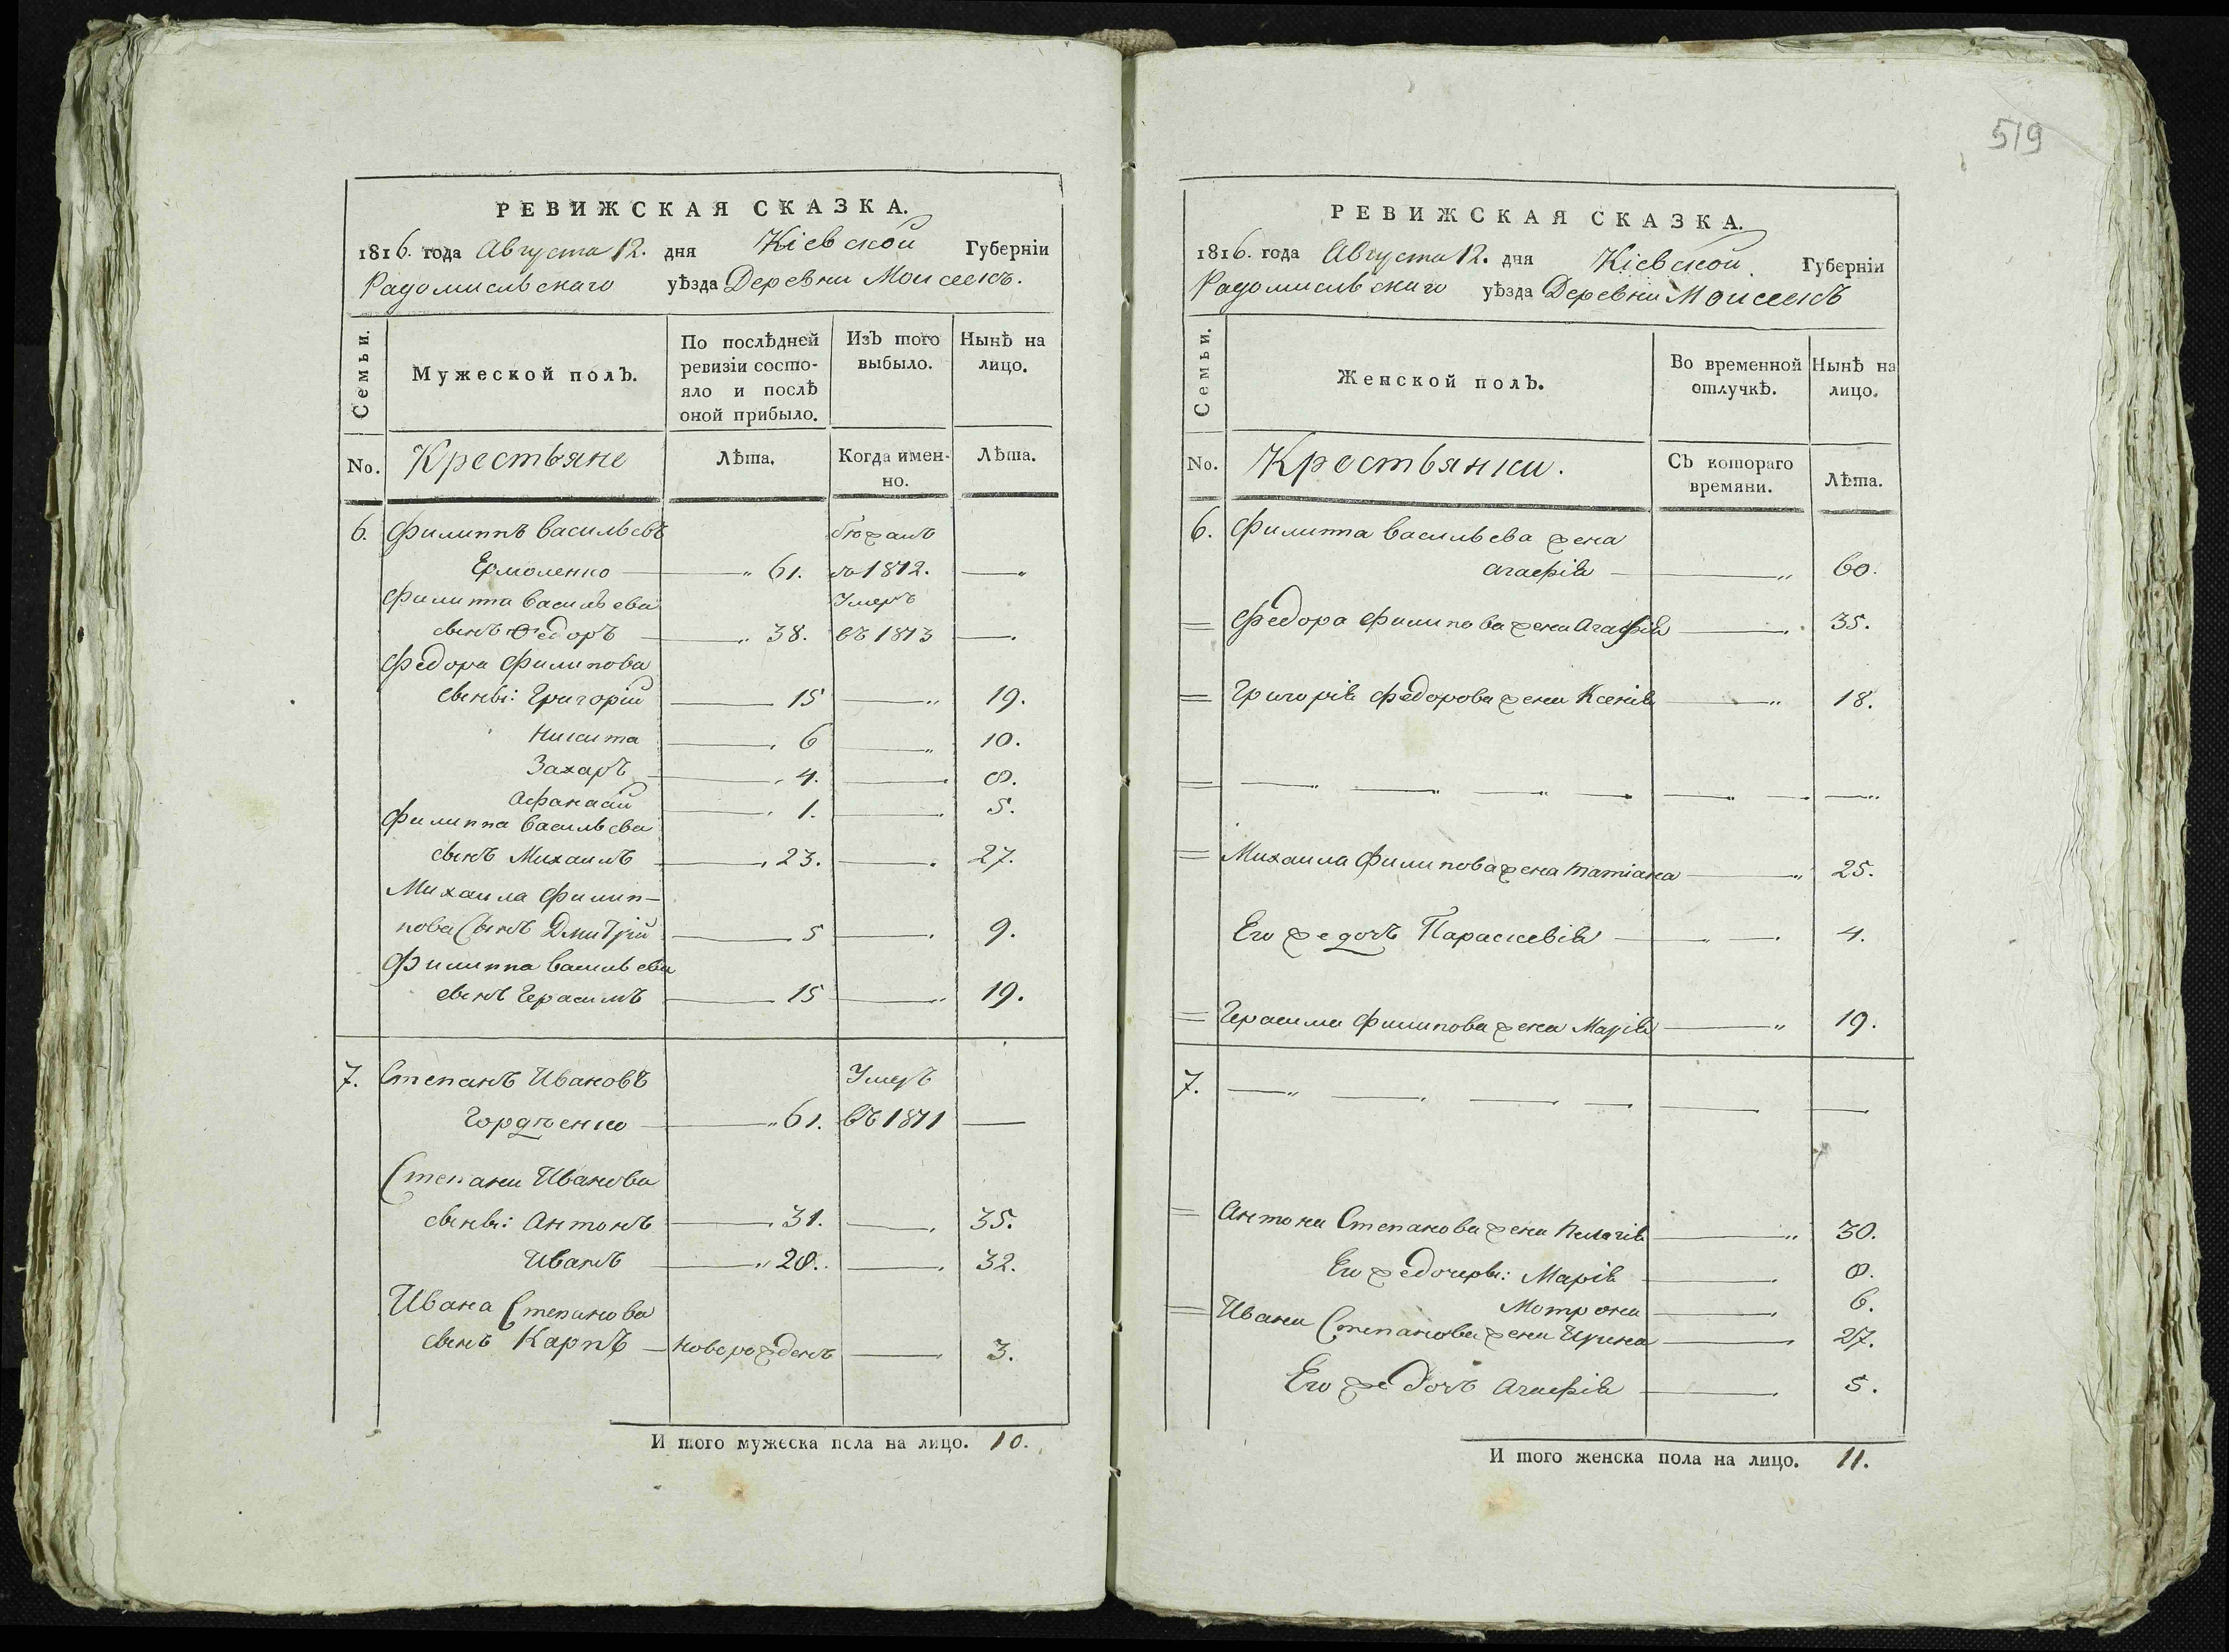 519
РЕВИЖСКАЯ СКАЗКА.
1816. года Августа 12. дня Кіевской Губерніи
Радомисльскаго уѣзда Деревни Моисеекъ.
Семьи.
Мужеской полъ.
По послѣдней ревизіи состо-
яло и послѣ
оной прибыло.
Изъ того выбыло.
Нынѣ на лицо.
No. Крестьяне Лѣта. Когда имен-
но. Лѣта.
6. Филиппъ Васильевъ бѣжалъ
Ермоленко 61. въ 1812.
Филиппа Васильева Умеръ
сынъ Федоръ 38. въ 1813
Федора Филипова
сыны: Григорій 15 19.
Никита 6 10.
Захаръ 4. 8.
Афанасій 1. 5.
Филиппа Васильева
сынъ Михаилъ 23. 27.
Михаила Филип-
пова Сынъ Дмитрій 5 9.
Филиппа Васильева
сынъ Герасимъ 15 19.
7. Степанъ Ивановъ Умеръ
Гордѣенко 61. въ 1811
Степана Иванова
сыны: Антонъ 31. 35.
Иванъ 28. 32.
Ивана Степанова
сынъ Карпъ новорожденъ 3.
И того мужеска пола на лицо. 10.
РЕВИЖСКАЯ СКАЗКА.
1816. года Августа 12. дня Кіевской Губерніи
Радомисльскаго уѣзда Деревни Моисеекъ
Семьи.
Женской полъ.
Во временной отлучкѣ.
Нынѣ на лицо.
No. Крестьянки. Съ котораго
времяни. Лѣта.
6. Филиппа Васильева жена
Агафія 60.
= Федора Филипова жена Агафія 35.
= Григорія Федорова жена Ксенія 18.
=
= Михаила Филипова жена Татіана 25.
Его же дочь Параскевія 4.
= Герасима Филипова жена Марія 19.
7.
= Антона Степанова жена Пелагія 30.
Его же дочеры: Марія 8.
Мотрона 6.
= Ивана Степанова жена Ирина 27.
Его же Дочь Агафія 5.
И того женска пола на лицо. 11.